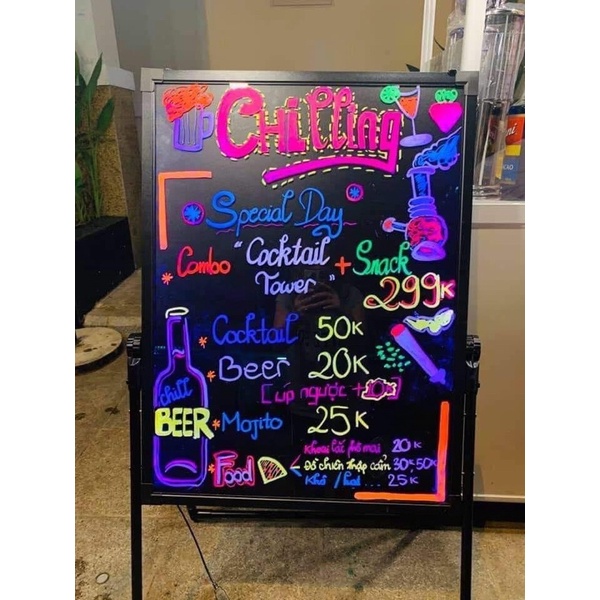 Chilling
Special Day
* Combo "Cocktail Tower" + Snack
299K
* Cocktail 50K
* Beer 20K
[úp ngược + 10K]
* Mojito 25K
chill
BEER
* Food
Khoai lắc phô mai 20K
Đồ chiên thập cẩm 30K-50K
Khô / ... 25K